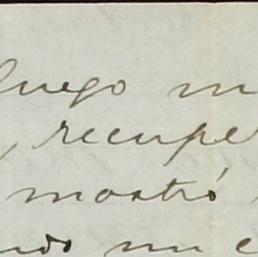 luego m
, recupe
mostró
ndo un e